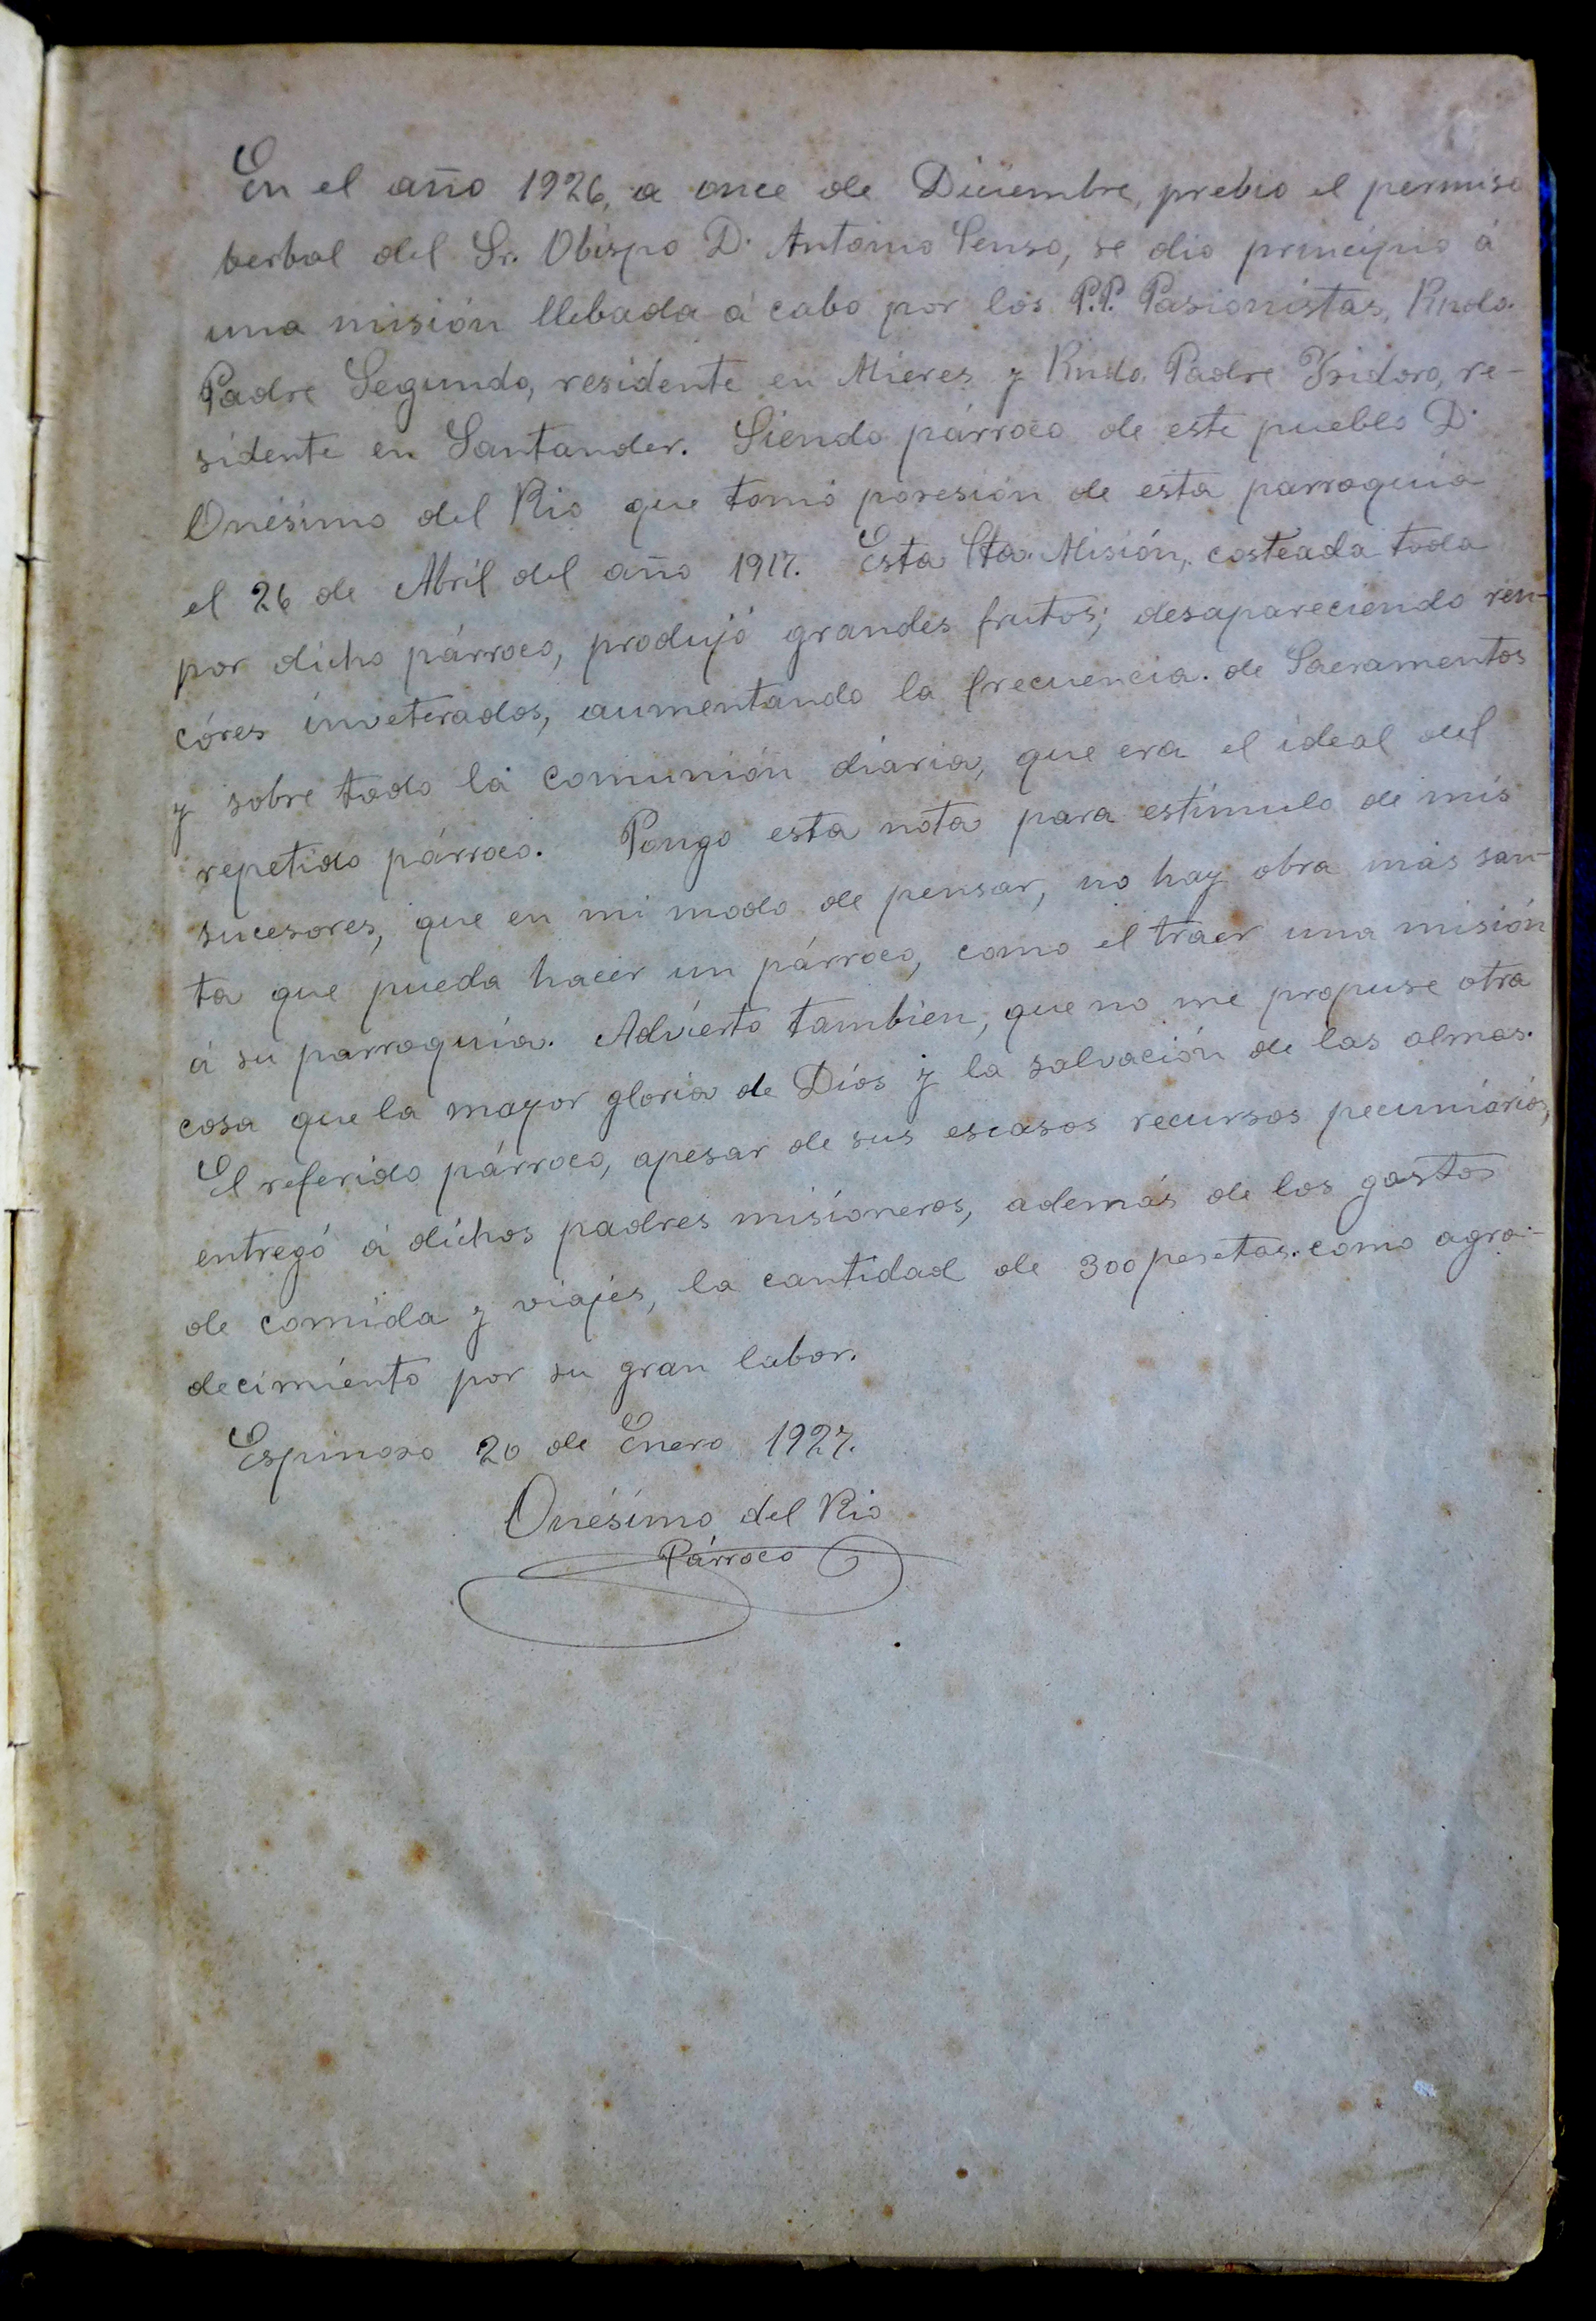 En el año 1926, a once de Diciembre, prebio el permiso
berbal del Sr. Obispo D. Antonio Senso, se dio principio á
una misión llebada á cabo por los P.P. Pasionistas, Rndo.
Padre Segundo, residente en Mieres y Rndo. Padre Ysidoro, re-
sidente en Santander. Siendo párroco de este pueblo D.
Onésimo del Rio que tomó poresión de esta parroquia
el 26 de Abril del año 1917. Esta Sta. Misión, costeada toda
por dicho párroco, produjó grandes frutos; desapareciendo ren-
córes inveterados, aumentando la frecuencia. de Sacramentos
y sobre todo la comunión diaria, que era el ideal del
repetido párroco. Pongo esta nota para estímulo de mis
sucesores, que en mi modo de pensar, no hay obra más san-
ta que pueda hacer un párroco, como el traer una misión
á su parroquia. Advierto tambien, que no me propuse otra
cosa que la mayor gloria de Dios y la salvación de las almas.
El referido párroco, apesar de sus escasos recursos pecuniários,
entregó á dichos padres misioneros, además de los gastos
de comida y viajes, la cantidad de 300 pesetas. como agra-
decimiento por su gran labor.
Espinosa 20 de Enero 1927.
Onésimo del Rio
Párroco